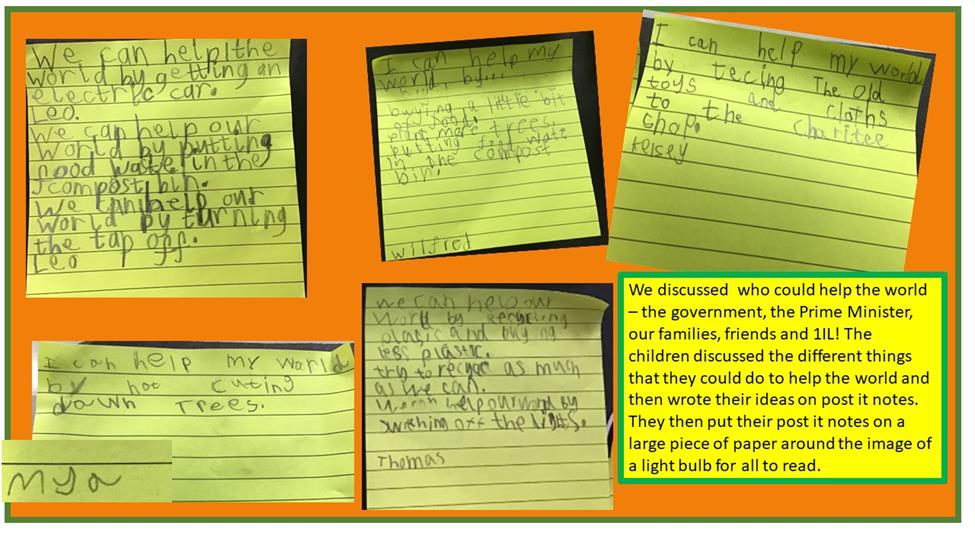 We can help the
world by getting an
electric car.
Leo.
We can help our
world by putting
food waste in the
compost bin.
We can help our
world by turning
the tap off.
Leo
I can help my
world by...
buying a little bit
of food.
plant more trees.
putting food wate
in the compost
bin.
Wilfred
I can help my world
by tecing The old
toys and cloths
to the charitee
chop.
Kelsey
I can help my world
by not cuting
down Trees.
Mya
we can help our
world by recycling
plastic and buying
less plastic.
try to recycle as much
as we can.
help our world by
swiching off the lights.
Thomas
We discussed who could help the world
– the government, the Prime Minister,
our families, friends and 1IL! The
children discussed the different things
that they could do to help the world and
then wrote their ideas on post it notes.
They then put their post it notes on a
large piece of paper around the image of
a light bulb for all to read.